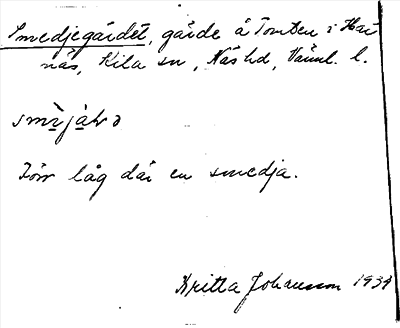 Smedjegärdet, gärde å Tomten i Har
näs, Kila sn, Näs hd, Värml. l.
Förr låg där en smedja.
Britta Johansson 1934